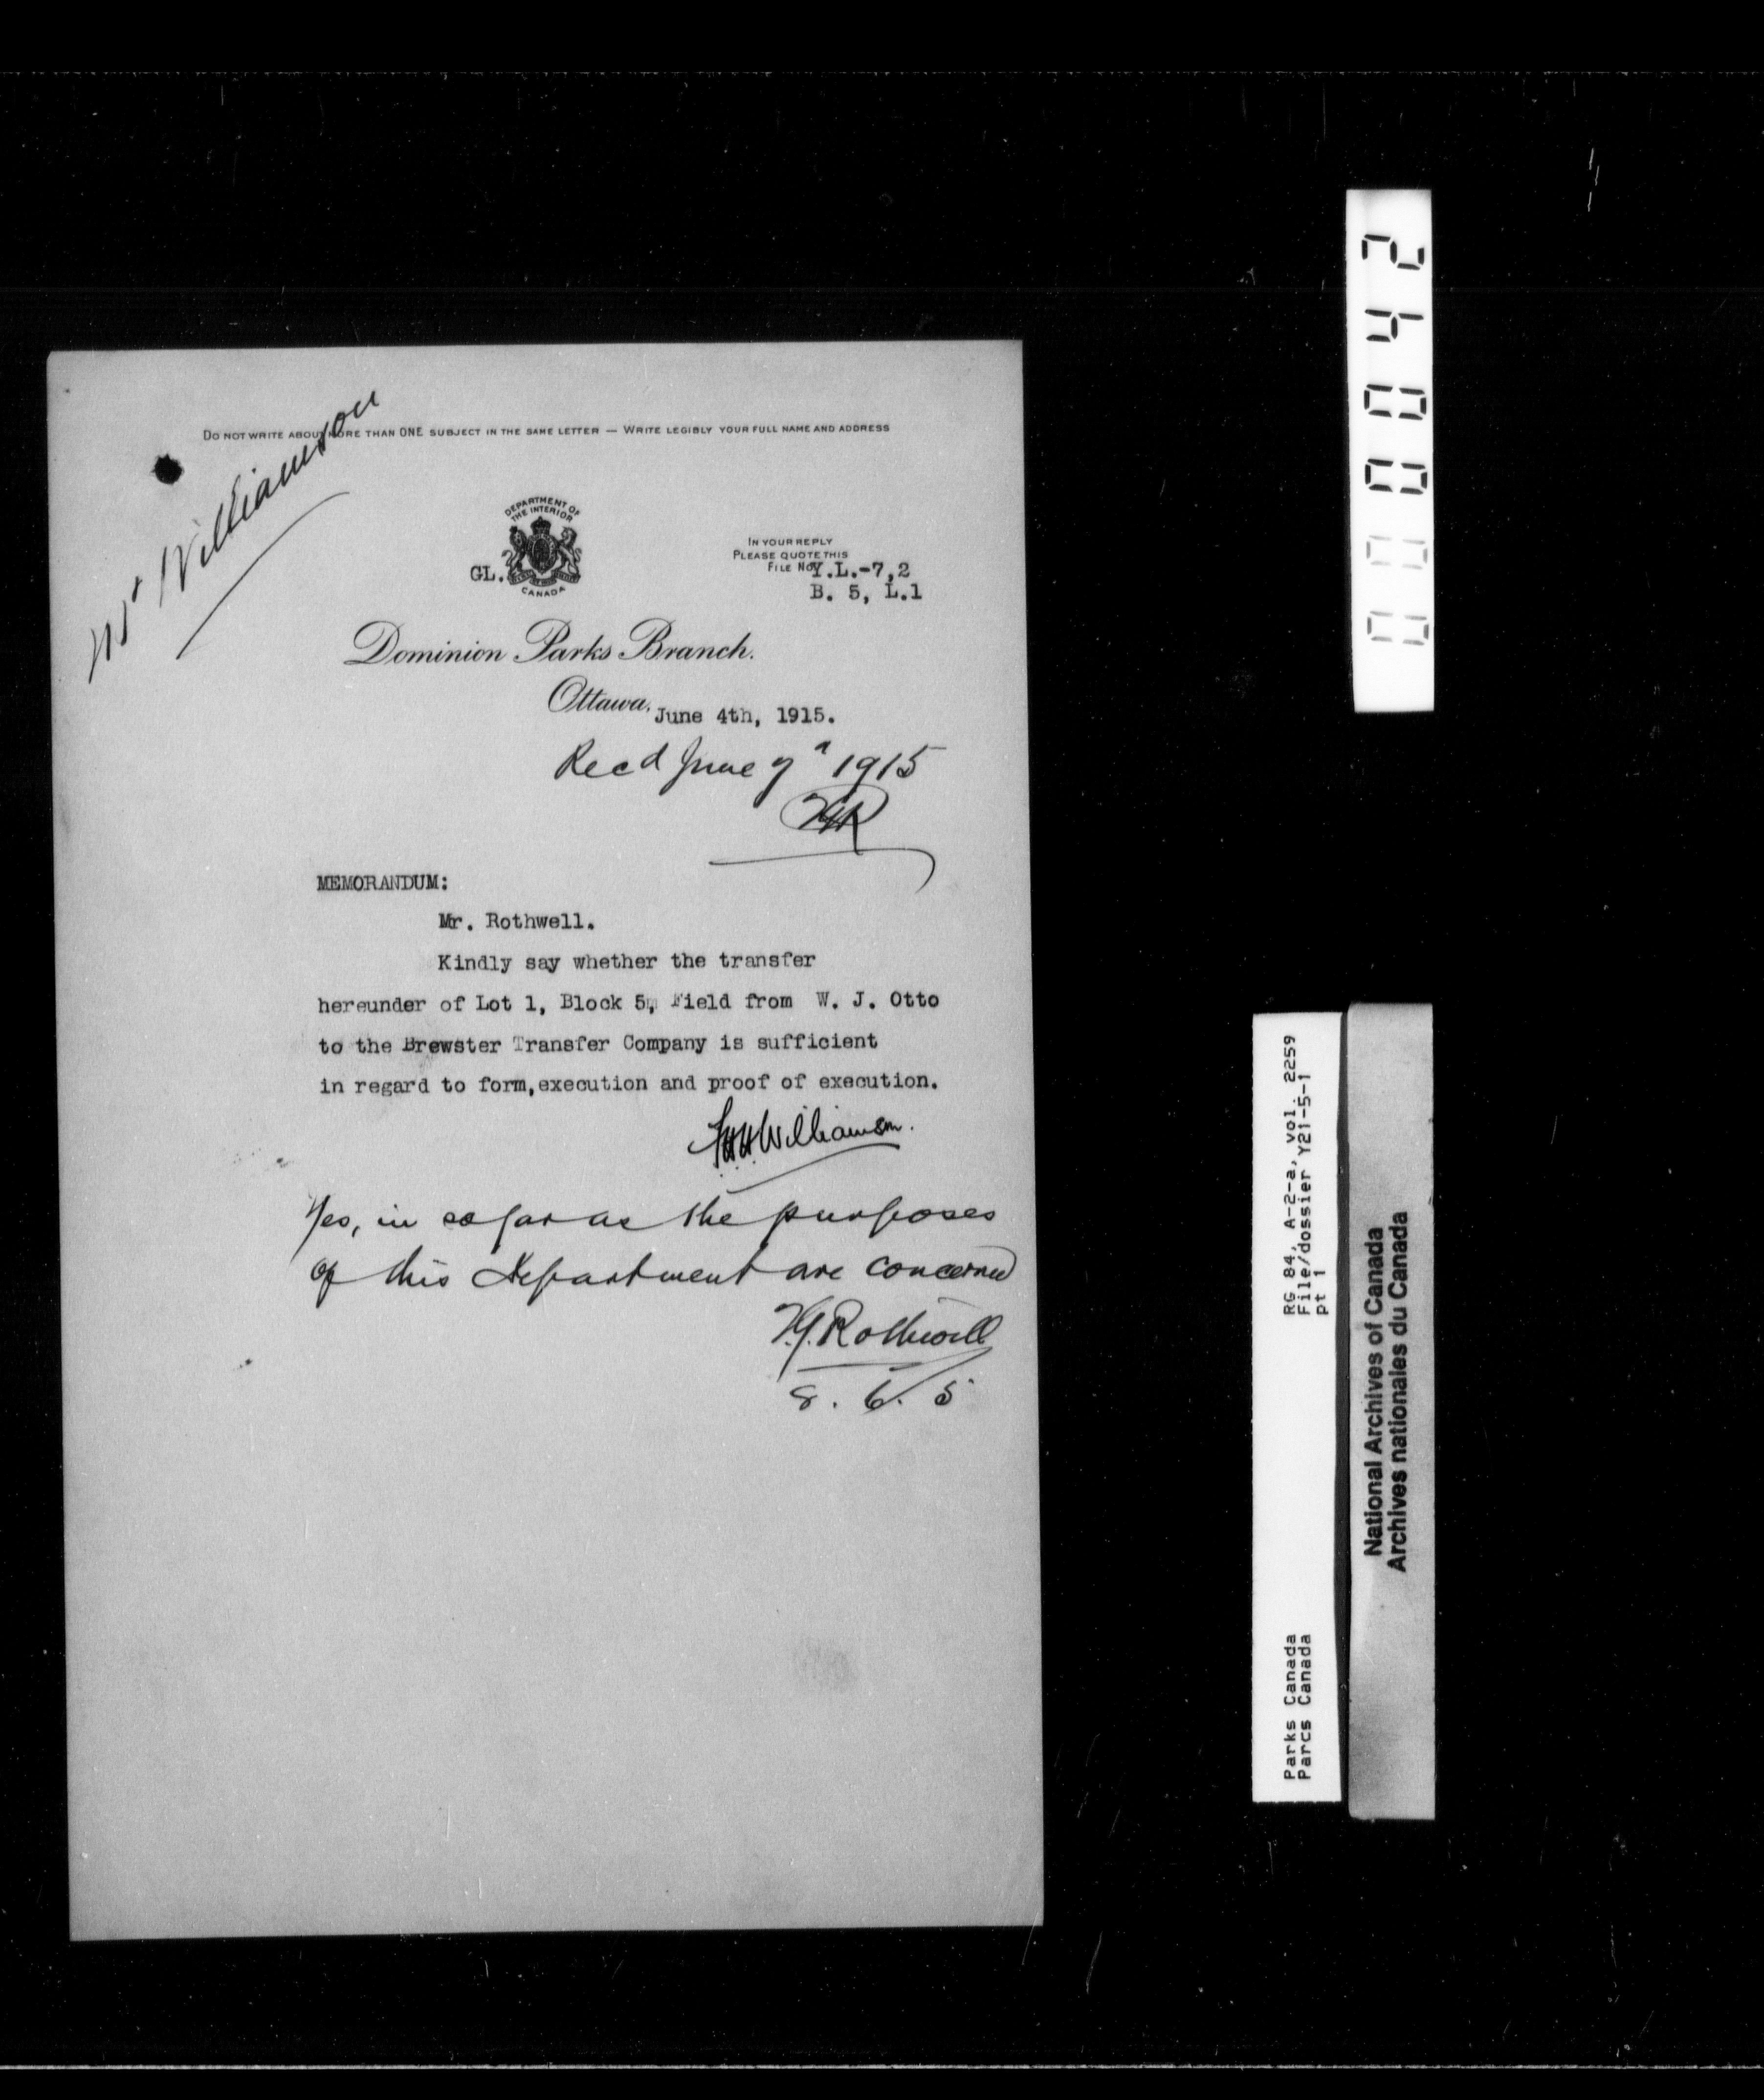 Mr Williamson
DO NOT WRITE ABOUT MORE THAN ONE SUBJECT IN THE SAME LETTER — WRITE LEGIBLY YOUR FULL NAME AND ADDRESS
DEPARTMENT OF
THE INTERIOR
CANADA
GL.
IN YOUR REPLY
PLEASE QUOTE THIS
FILE No. Y.L.-7,2
B. 5, L.1
Dominion Parks Branch.
Ottawa, June 4th, 1915.
Recd June 7th 1915
MEMORANDUM:
Mr. Rothwell.
Kindly say whether the transfer
hereunder of Lot 1, Block 5, Field from W. J. Otto
to the Brewster Transfer Company is sufficient
in regard to form, execution and proof of execution.
F.H.H. Williamson.
Yes, in so far as the purposes
of this Department are concerned
T.G. Rothwell
8. 6. 5
000042
RG 84, A-2-a, vol. 2259
File/dossier Y21-5-1
pt 1
Parks Canada
Parcs Canada
National Archives of Canada
Archives nationales du Canada